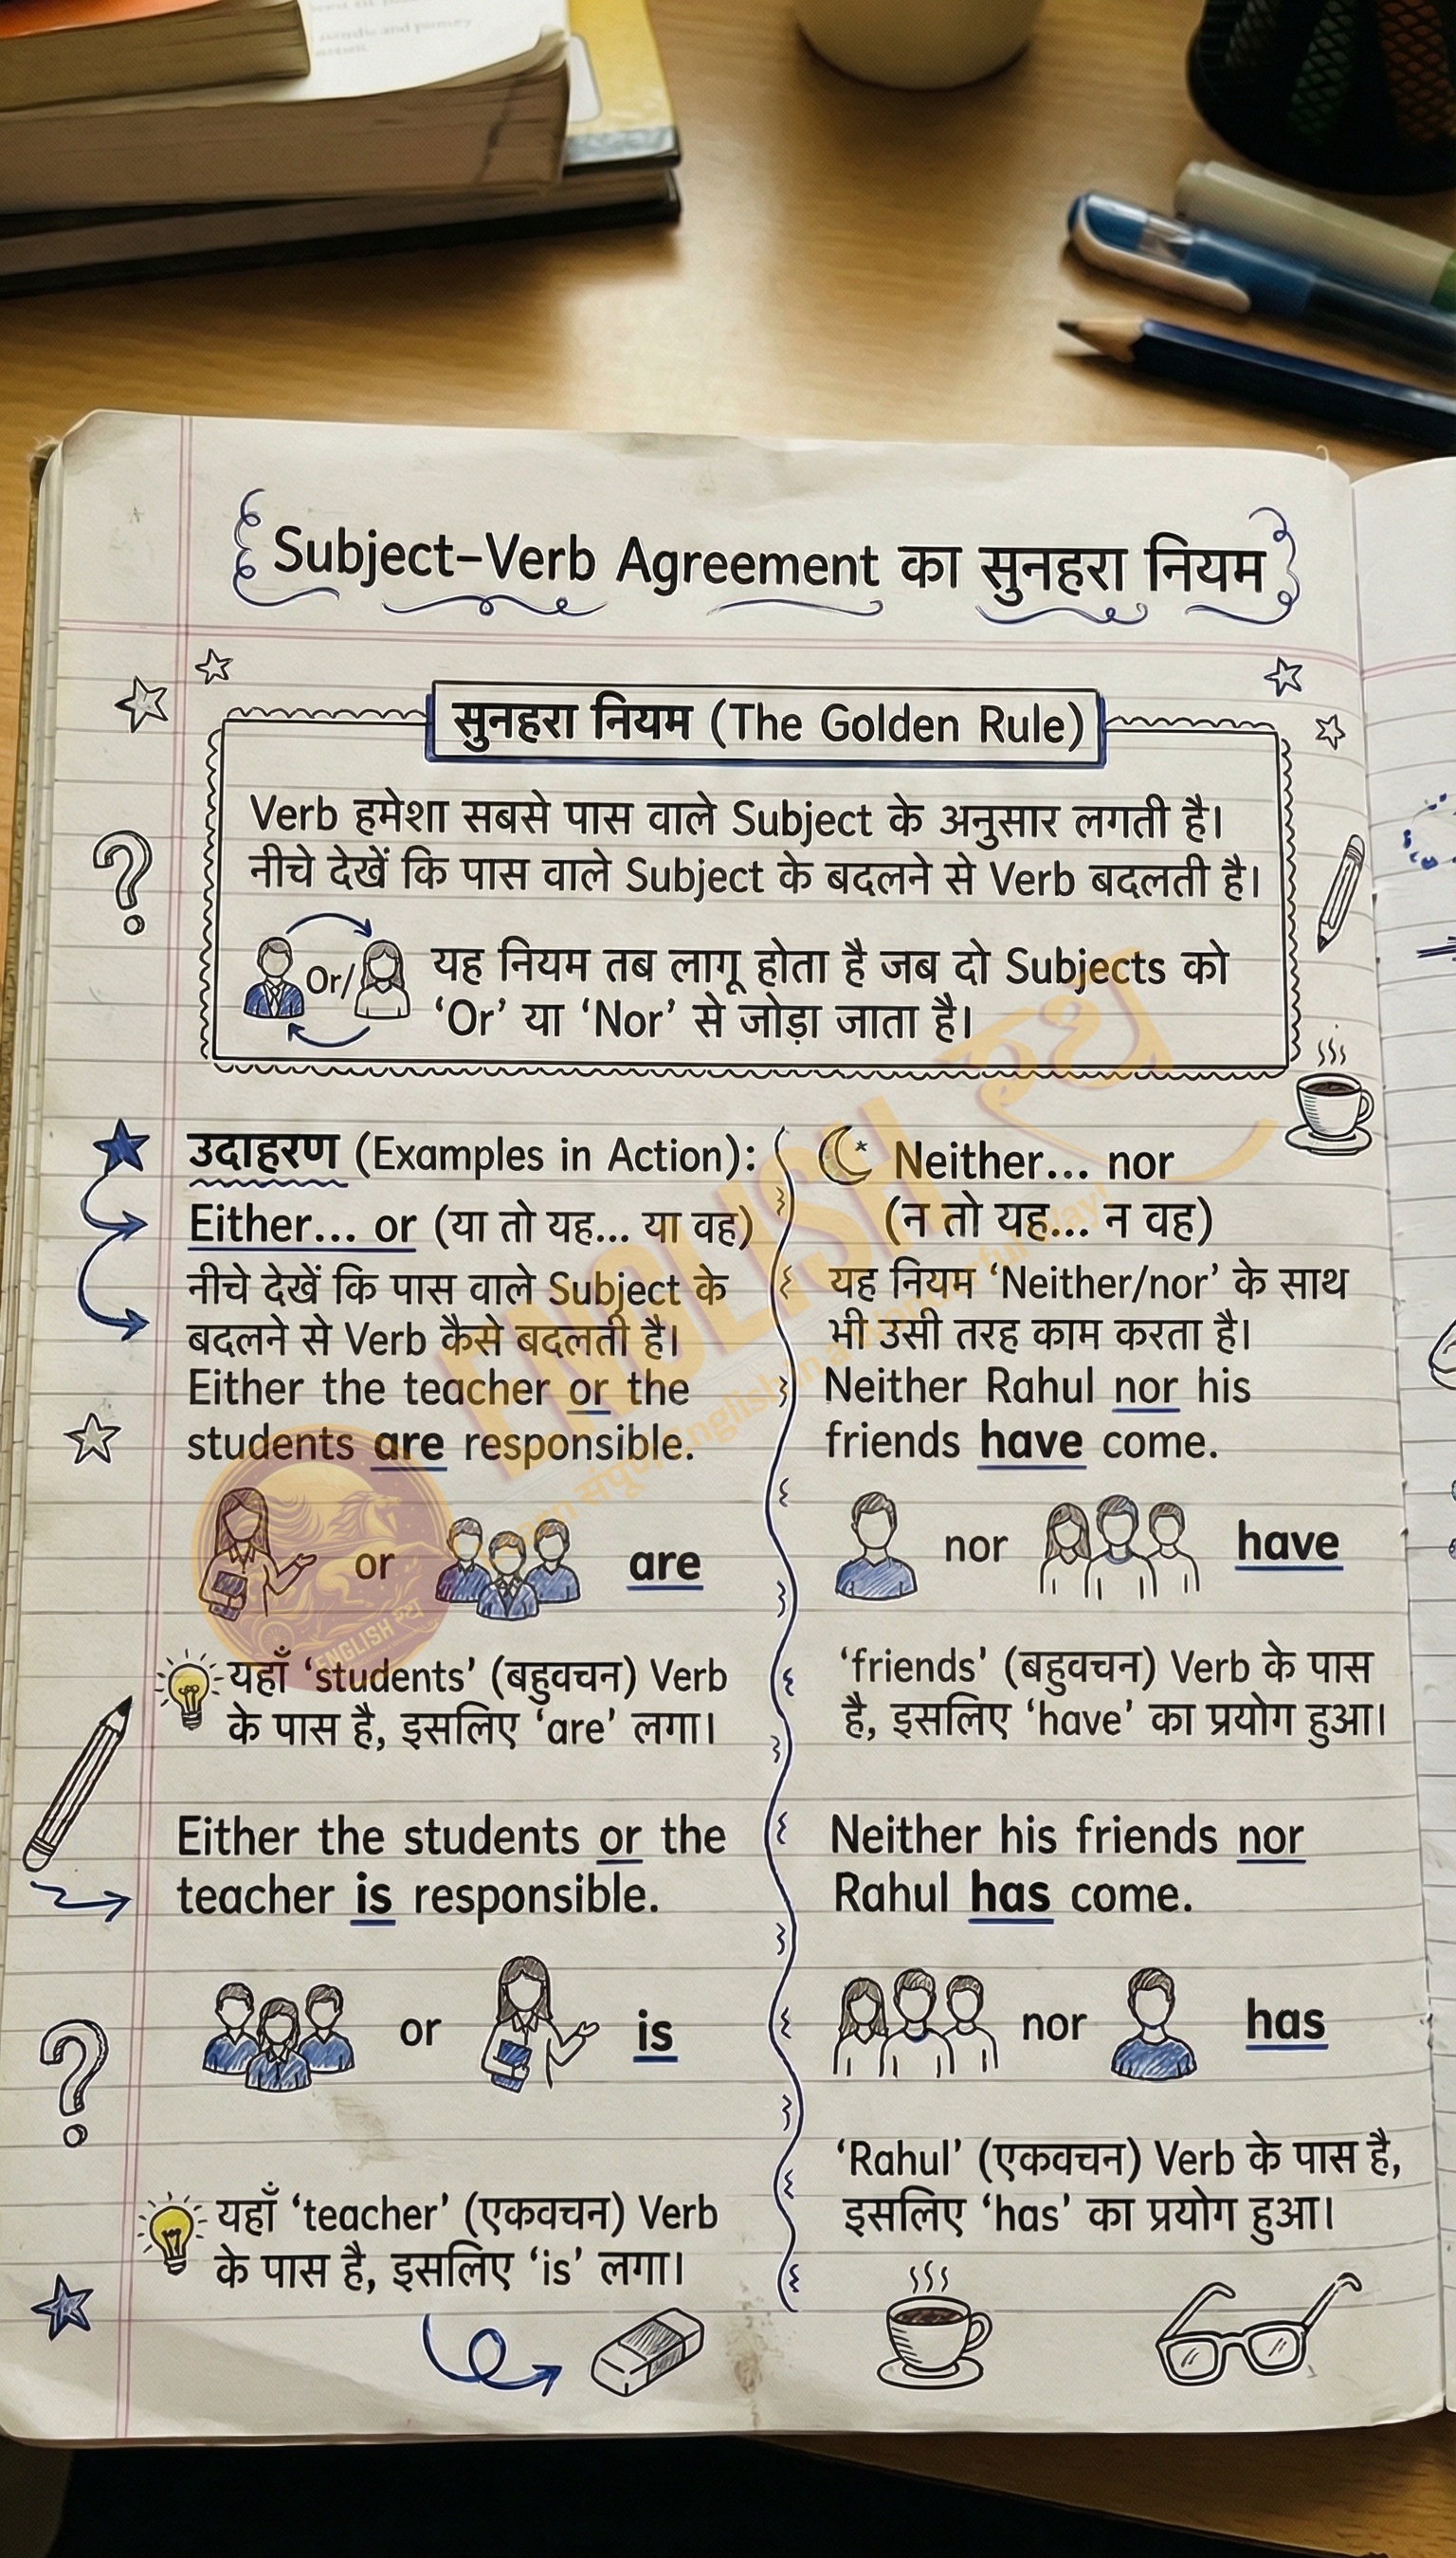 Subject-Verb Agreement का सुनहरा नियम
सुनहरा नियम (The Golden Rule)
Verb हमेशा सबसे पास वाले Subject के अनुसार लगती है।
नीचे देखें कि पास वाले Subject के बदलने से Verb बदलती है।
Or/
यह नियम तब लागू होता है जब दो Subjects को
‘Or’ या ‘Nor’ से जोड़ा जाता है।
उदाहरण (Examples in Action):
Either... or (या तो यह... या वह)
नीचे देखें कि पास वाले Subject के
बदलने से Verb कैसे बदलती है।
Either the teacher or the
students are responsible.
or are
यहाँ ‘students’ (बहुवचन) Verb
के पास है, इसलिए ‘are’ लगा।
Either the students or the
teacher is responsible.
or is
यहाँ ‘teacher’ (एकवचन) Verb
के पास है, इसलिए ‘is’ लगा।
Neither... nor
(न तो यह... न वह)
यह नियम ‘Neither/nor’ के साथ
भी उसी तरह काम करता है।
Neither Rahul nor his
friends have come.
nor have
‘friends’ (बहुवचन) Verb के पास
है, इसलिए ‘have’ का प्रयोग हुआ।
Neither his friends nor
Rahul has come.
nor has
‘Rahul’ (एकवचन) Verb के पास है,
इसलिए ‘has’ का प्रयोग हुआ।
ENGLISH रथ
संपूर्ण English in a Wonderful way!
ENGLISH रथ